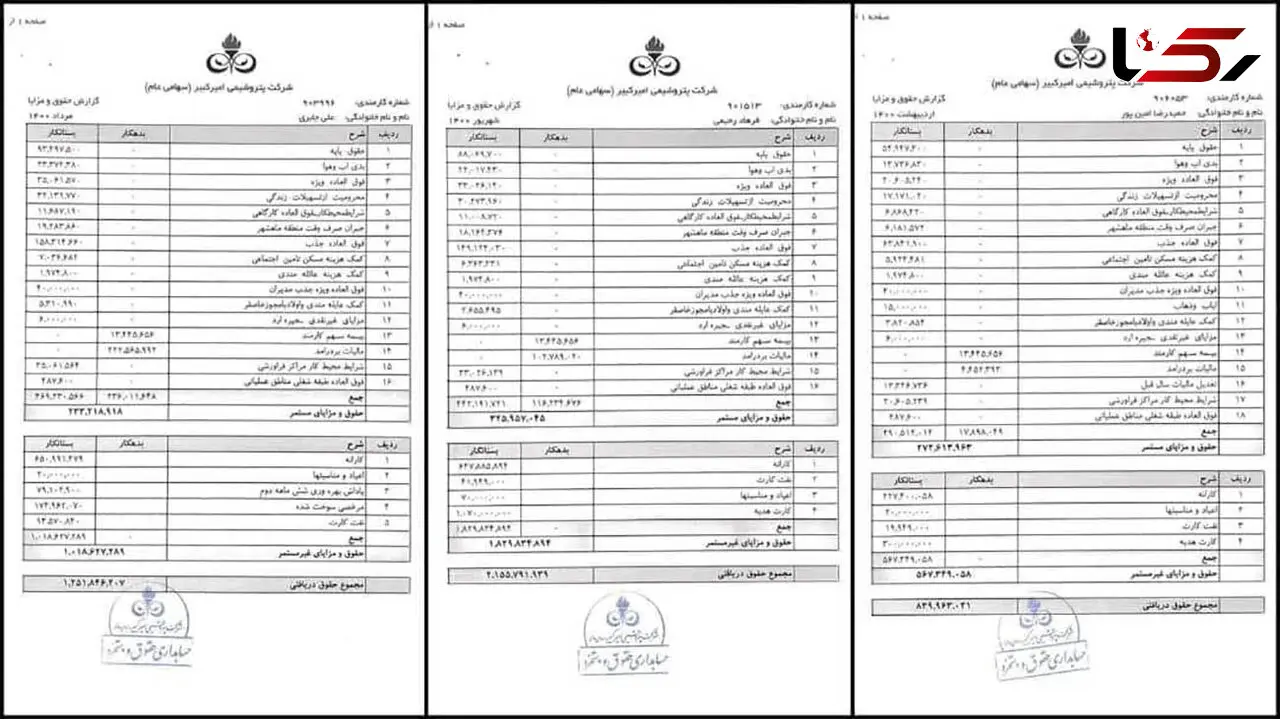 رکنا
صفحه ۱ از
شرکت پتروشیمی امیرکبیر (سهامی عام)
شماره کارمندی: ۹۰۶۰۵۳ گزارش حقوق و مزایا
نام و نام خانوادگی: حمیدرضا امین پور اردیبهشت ۱۴۰۰
ردیف شرح بدهکار بستانکار
۱ حقوق پایه - ۵۴,۹۴۷,۲۰۰
۲ بدی اب وهوا - ۱۳,۷۳۶,۸۲۰
۳ فوق العاده ویژه - ۲۰,۶۰۵,۲۴۰
۴ محرومیت ازتسهیلات زندگی - ۱۷,۱۷۱,۰۲۰
۵ شرایطمحیطکار_فوق العاده کارگاهی - ۶,۸۶۸,۴۲۰
۶ جبران صرف وقت منطقه ماهشهر - ۶,۱۸۱,۵۷۲
۷ فوق العاده جذب - ۶۳,۸۴۱,۹۰۰
۸ کمک هزینه مسکن تامین اجتماعی - ۵,۹۲۴,۴۸۱
۹ کمک هزینه عائله مندی - ۱,۹۷۴,۸۰۰
۱۰ فوق العاده ویژه جذب مدیران - ۴۰,۰۰۰,۰۰۰
۱۱ ایاب وذهاب - ۱۵,۰۰۰,۰۰۰
۱۲ کمک عایله مندی واولادبامجوزخاصفر - ۳,۸۲۰,۸۵۴
۱۳ مزایای غیرنقدی _جیره ارد - ۶,۰۰۰,۰۰۰
۱۴ بیمه سهم کارمند ۱۳,۴۴۵,۶۵۶ -
۱۵ مالیات بردرامد ۴,۴۵۲,۳۹۳ -
۱۶ تعدیل مالیات سال قبل - ۱۳,۳۴۶,۷۳۶
۱۷ شرایط محیط کار مراکز فراورشی - ۲۰,۶۰۵,۲۳۹
۱۸ فوق العاده طبقه شغلی مناطق عملیاتی - ۴۸۷,۶۰۰
جمع ۱۷,۸۹۸,۰۴۹ ۲۹۰,۵۱۲,۰۱۲
حقوق و مزایای مستمر ۲۷۲,۶۱۳,۹۶۳
ردیف شرح بدهکار بستانکار
۱ کارانه ۲۲۷,۴۰۰,۰۵۸
۲ اعیاد و مناسبتها ۲۰,۰۰۰,۰۰۰
۳ نفت کارت ۱۹,۹۴۹,۰۰۰
۴ کارت هدیه ۳۰۰,۰۰۰,۰۰۰
جمع - ۵۶۷,۳۴۹,۰۵۸
حقوق و مزایای غیرمستمر ۵۶۷,۳۴۹,۰۵۸
مجموع حقوق دریافتی ۸۳۹,۹۶۳,۰۲۱
حسابداری حقوق و دستمزد
صفحه ۱ از
شرکت پتروشیمی امیرکبیر (سهامی عام)
شماره کارمندی: ۹۰۱۵۱۳ گزارش حقوق و مزایا
نام و نام خانوادگی: فرهاد رحیمی شهریور ۱۴۰۰
ردیف شرح بدهکار بستانکار
۱ حقوق پایه - ۸۸,۰۶۹,۷۰۰
۲ بدی اب وهوا - ۲۲,۰۱۷,۴۳۰
۳ فوق العاده ویژه - ۳۳,۰۲۶,۱۴۰
۴ محرومیت ازتسهیلات زندگی - ۳۰,۲۷۳,۹۶۰
۵ شرایطمحیطکار_فوق العاده کارگاهی - ۱۱,۰۰۸,۷۲۰
۶ جبران صرف وقت منطقه ماهشهر - ۱۸,۱۶۴,۳۷۴
۷ فوق العاده جذب - ۱۴۹,۱۲۴,۰۳۰
۸ کمک هزینه مسکن تامین اجتماعی - ۶,۳۶۳,۲۳۱
۹ کمک هزینه عائله مندی - ۱,۹۷۴,۸۰۰
۱۰ فوق العاده ویژه جذب مدیران - ۴۰,۰۰۰,۰۰۰
۱۱ کمک عایله مندی واولادبامجوزخاصفر - ۲,۶۵۵,۴۹۵
۱۲ مزایای غیرنقدی _جیره ارد - ۶,۰۰۰,۰۰۰
۱۳ بیمه سهم کارمند ۱۳,۴۴۵,۶۵۶ -
۱۴ مالیات بردرامد ۱۰۲,۷۸۹,۰۲۰ -
۱۵ شرایط محیط کار مراکز فراورشی - ۳۳,۰۲۶,۱۳۹
۱۶ فوق العاده طبقه شغلی مناطق عملیاتی - ۴۸۷,۶۰۰
جمع ۱۱۶,۲۳۴,۶۷۶ ۴۴۲,۱۹۱,۷۲۱
حقوق و مزایای مستمر ۳۲۵,۹۵۷,۰۴۵
ردیف شرح بدهکار بستانکار
۱ کارانه ۶۴۷,۸۸۵,۸۹۴
۲ نفت کارت ۴۱,۹۴۹,۰۰۰
۳ اعیاد و مناسبتها ۷۰,۰۰۰,۰۰۰
۴ کارت هدیه ۱,۰۷۰,۰۰۰,۰۰۰
جمع - ۱,۸۲۹,۸۳۴,۸۹۴
حقوق و مزایای غیرمستمر ۱,۸۲۹,۸۳۴,۸۹۴
مجموع حقوق دریافتی ۲,۱۵۵,۷۹۱,۹۳۹
حسابداری حقوق و دستمزد
صفحه ۱ از
شرکت پتروشیمی امیرکبیر (سهامی عام)
شماره کارمندی: ۹۰۳۹۹۶ گزارش حقوق و مزایا
نام و نام خانوادگی: علی جابری مرداد ۱۴۰۰
ردیف شرح بدهکار بستانکار
۱ حقوق پایه - ۹۳,۴۹۷,۵۰۰
۲ بدی اب وهوا - ۲۳,۳۷۴,۳۸۰
۳ فوق العاده ویژه - ۳۵,۰۶۱,۵۷۰
۴ محرومیت ازتسهیلات زندگی - ۳۲,۱۳۹,۷۷۰
۵ شرایطمحیطکار_فوق العاده کارگاهی - ۱۱,۶۸۷,۱۹۰
۶ جبران صرف وقت منطقه ماهشهر - ۱۹,۲۸۳,۸۶۰
۷ فوق العاده جذب - ۱۵۸,۳۱۴,۶۶۰
۸ کمک هزینه مسکن تامین اجتماعی - ۷,۰۳۶,۶۸۲
۹ کمک هزینه عائله مندی - ۱,۹۷۴,۸۰۰
۱۰ فوق العاده ویژه جذب مدیران - ۴۰,۰۰۰,۰۰۰
۱۱ کمک عایله مندی واولادبامجوزخاصفر - ۵,۳۱۰,۹۹۰
۱۲ مزایای غیرنقدی _جیره ارد - ۶,۰۰۰,۰۰۰
۱۳ بیمه سهم کارمند ۱۳,۴۴۵,۶۵۶ -
۱۴ مالیات بردرامد ۲۲۲,۵۶۵,۹۹۲ -
۱۵ شرایط محیط کار مراکز فراورشی - ۳۵,۰۶۱,۵۶۴
۱۶ فوق العاده طبقه شغلی مناطق عملیاتی - ۴۸۷,۶۰۰
جمع ۲۳۶,۰۱۱,۶۴۸ ۴۶۹,۲۳۰,۵۶۶
حقوق و مزایای مستمر ۲۳۳,۲۱۸,۹۱۸
ردیف شرح بدهکار بستانکار
۱ کارانه ۶۵۰,۹۹۱,۴۷۹
۲ اعیاد و مناسبتها ۲۰,۰۰۰,۰۰۰
۳ پاداش بهره وری شش ماهه دوم ۷۹,۱۰۲,۹۰۰
۴ مرخصی سوخت شده ۱۷۴,۹۶۲,۰۷۰
۵ نفت کارت ۹۳,۵۷۰,۸۴۰
جمع - ۱,۰۱۸,۶۲۷,۲۸۹
حقوق و مزایای غیرمستمر ۱,۰۱۸,۶۲۷,۲۸۹
مجموع حقوق دریافتی ۱,۲۵۱,۸۴۶,۲۰۷
حسابداری حقوق و دستمزد